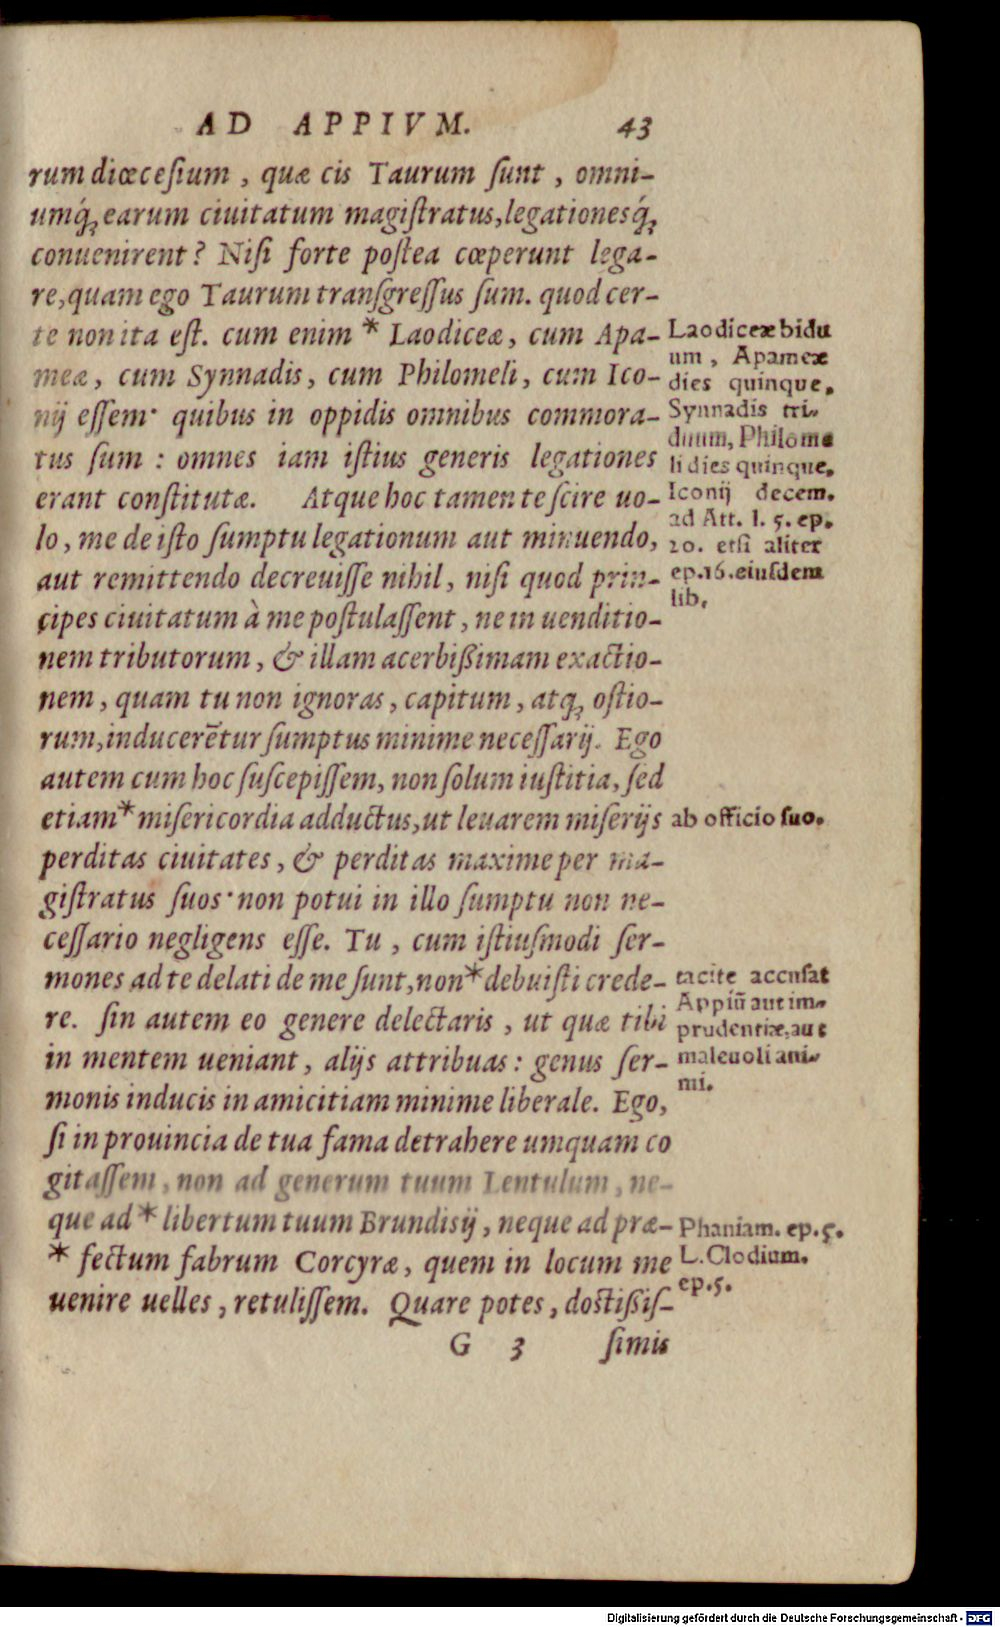 AD APPIVM. 43
rum diœcesium, quæ cis Taurum sunt, omni-
umq́; earum ciuitatum magistratus, legationesq́;
conuenirent? Nisi forte postea cœperunt lega-
re, quam ego Taurum transgressus sum. quod cer-
te non ita est. cum enim * Laodiceæ, cum Apa-
meæ, cum Synnadis, cum Philomeli, cum Ico-
nij essem· quibus in oppidis omnibus commora-
tus sum: omnes iam istius generis legationes
erant constitutæ. Atque hoc tamen te scire uo-
lo, me de isto sumptu legationum aut minuendo,
aut remittendo decreuisse nihil, nisi quod prin-
cipes ciuitatum à me postulassent, ne in uenditio-
nem tributorum, & illam acerbißimam exactio-
nem, quam tu non ignoras, capitum, atq; ostio-
rum, inducerētur sumptus minime necessarij. Ego
autem cum hoc suscepissem, non solum iustitia, sed
etiam * misericordia adductus, ut leuarem miserijs
perditas ciuitates, & perditas maxime per ma-
gistratus suos· non potui in illo sumptu non ne-
cessario negligens esse. Tu, cum istiusmodi ser-
mones ad te delati de me sunt, non * debuisti crede-
re. sin autem eo genere delectaris, ut quæ tibi
in mentem ueniant, alijs attribuas: genus ser-
monis inducis in amicitiam minime liberale. Ego,
si in prouincia de tua fama detrahere umquam co
gitassem, non ad generum tuum Lentulum, ne-
que ad * libertum tuum Brundisij, neque ad præ-
* fectum fabrum Corcyræ, quem in locum me
uenire uelles, retulissem. Quare potes, doctißis-
G 3 simis
Laodiceæ bidu
um, Apameæ
dies quinque,
Synnadis tri-
duum, Philome
li dies quinque,
Iconij decem.
ad Att. l. 5. ep.
20. etsi aliter
ep. 16. eiusdem
lib.
ab officio suo.
tacite accusat
Appiū aut im-
prudentiæ, aut
maleuoli ani-
mi.
Phaniam. ep. 5.
L. Clodium.
ep. 5.
Digitalisierung gefördert durch die Deutsche Forschungsgemeinschaft - DFG